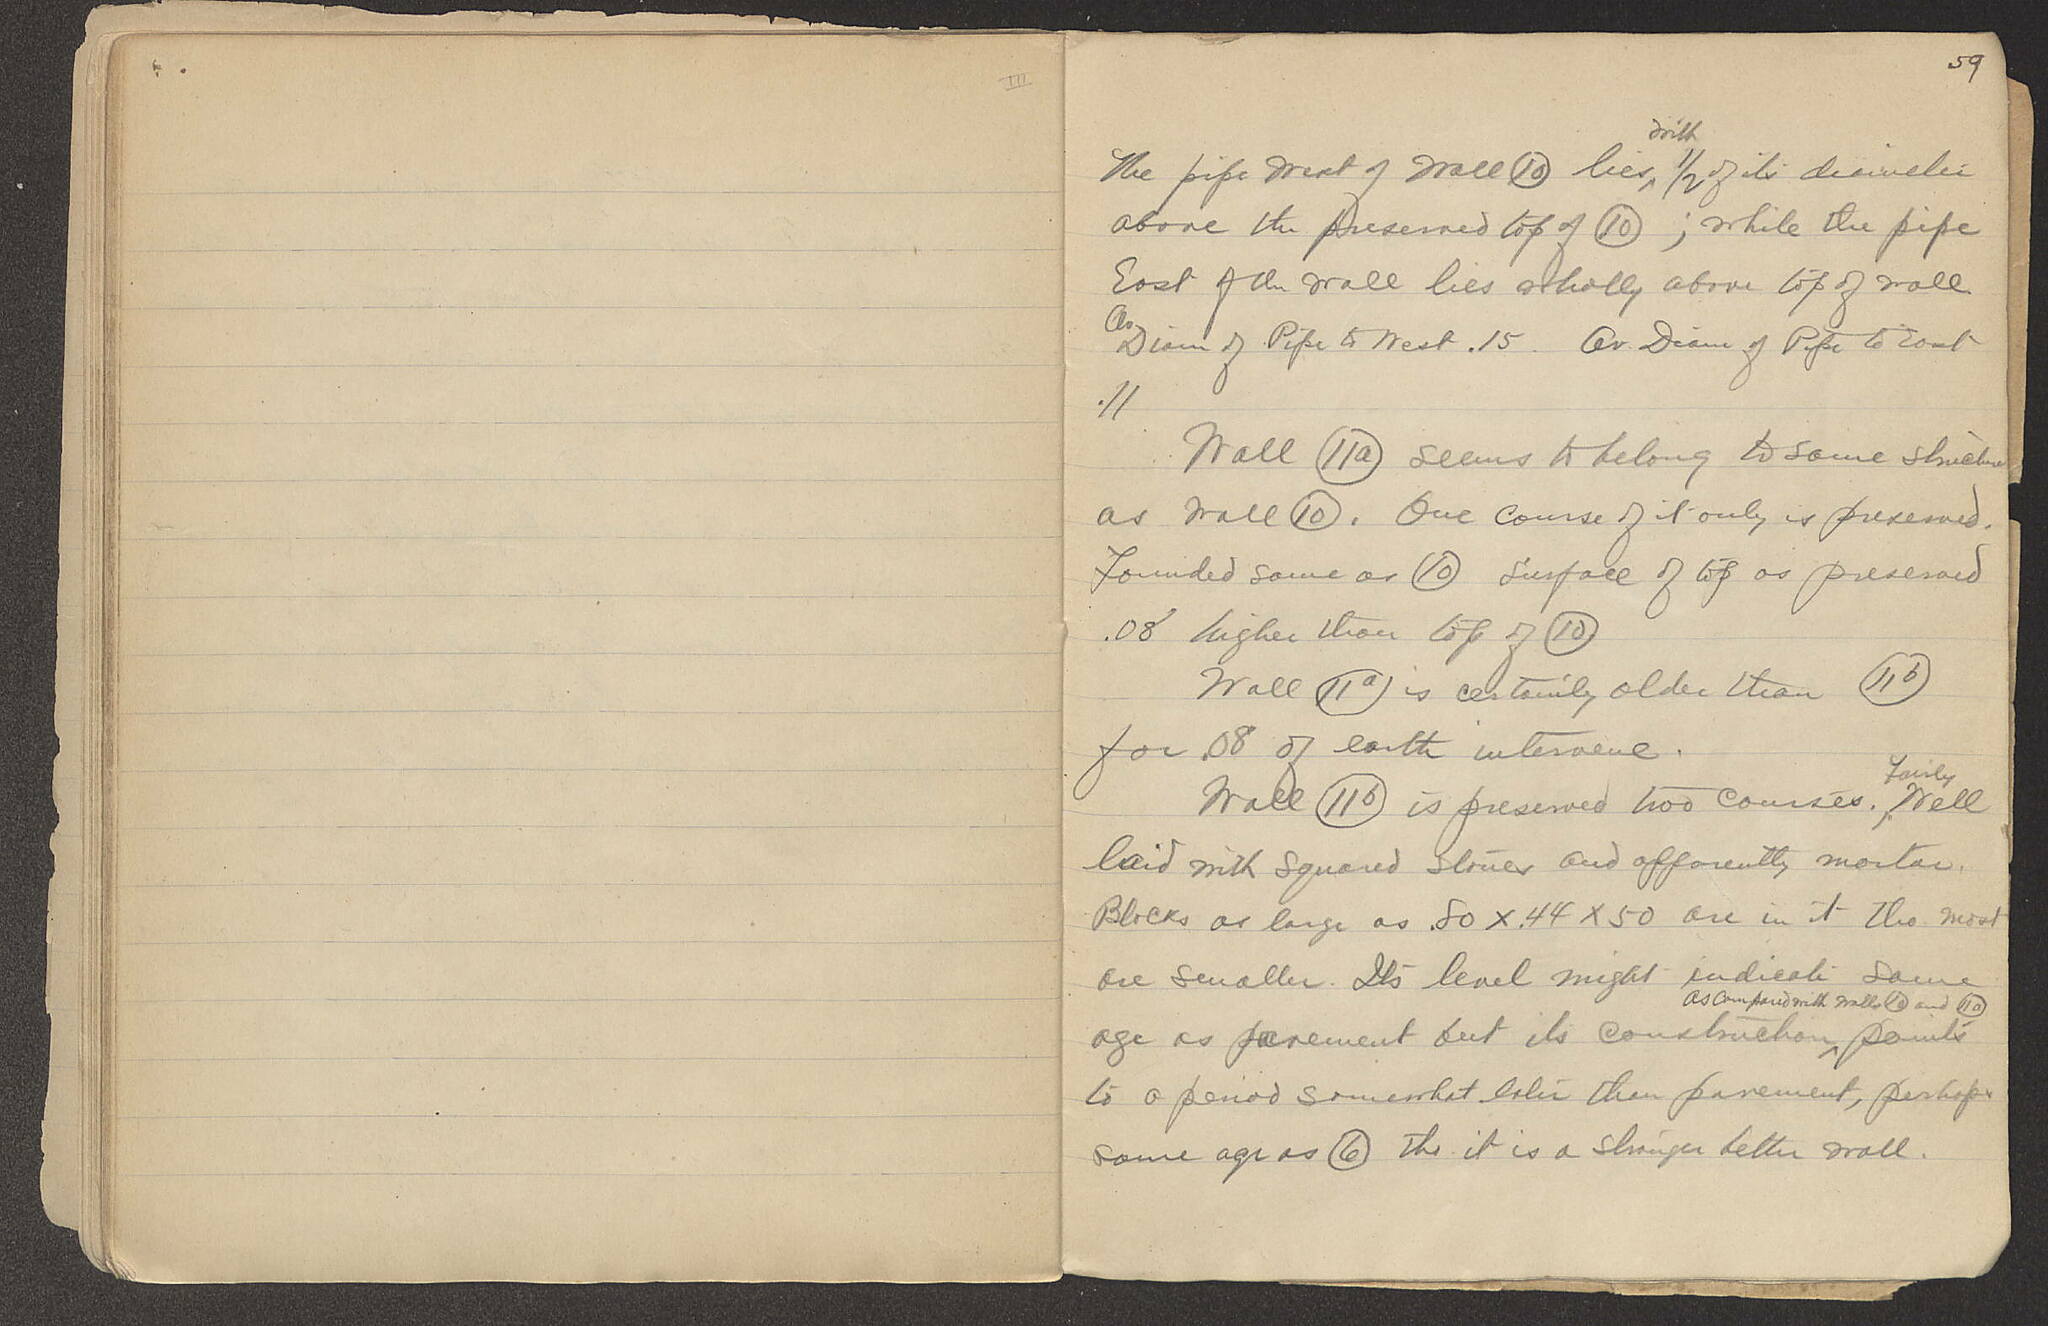 III
59
The pipe West of Wall 10 lies with 1/2 of its diameter
above the preserved top of 10 ; while the pipe
East of the wall lies wholly above top of wall
Av. Diam of Pipe to West .15 Av. Diam of Pipe to East
.11
Wall 11a seems to belong to same structure
as wall 10. One course of it only is preserved.
Founded same as 10 Surface of top as preserved
.08 higher than top of 10
Wall 11a is certainly older than 11b
for .08 of earth intervene.
Wall 11b is preserved two courses. Fairly Well
laid with squared stones and apparently mortar.
Blocks as large as .80 x .44 x 50 are in it tho most
are smaller. Its level might indicate same
age as pavement but its construction as compared with walls 10 and 11a points
to a period somewhat later than pavement, perhaps
same age as 6 tho it is a stronger better wall.